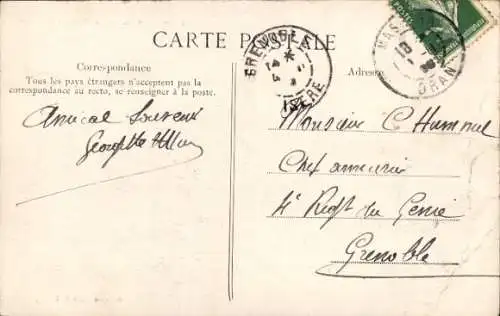 CARTE POSTALE
GRENOBLE
ISÈRE
MAS
ORAN
Correspondance
Tous les pays étrangers n'acceptent pas la
correspondance au recto, se renseigner à la poste.
Adresse
Amical Souvenir
Georgette
Monsieur C Hummel
Chef armurier
4e Régt du Génie
Grenoble